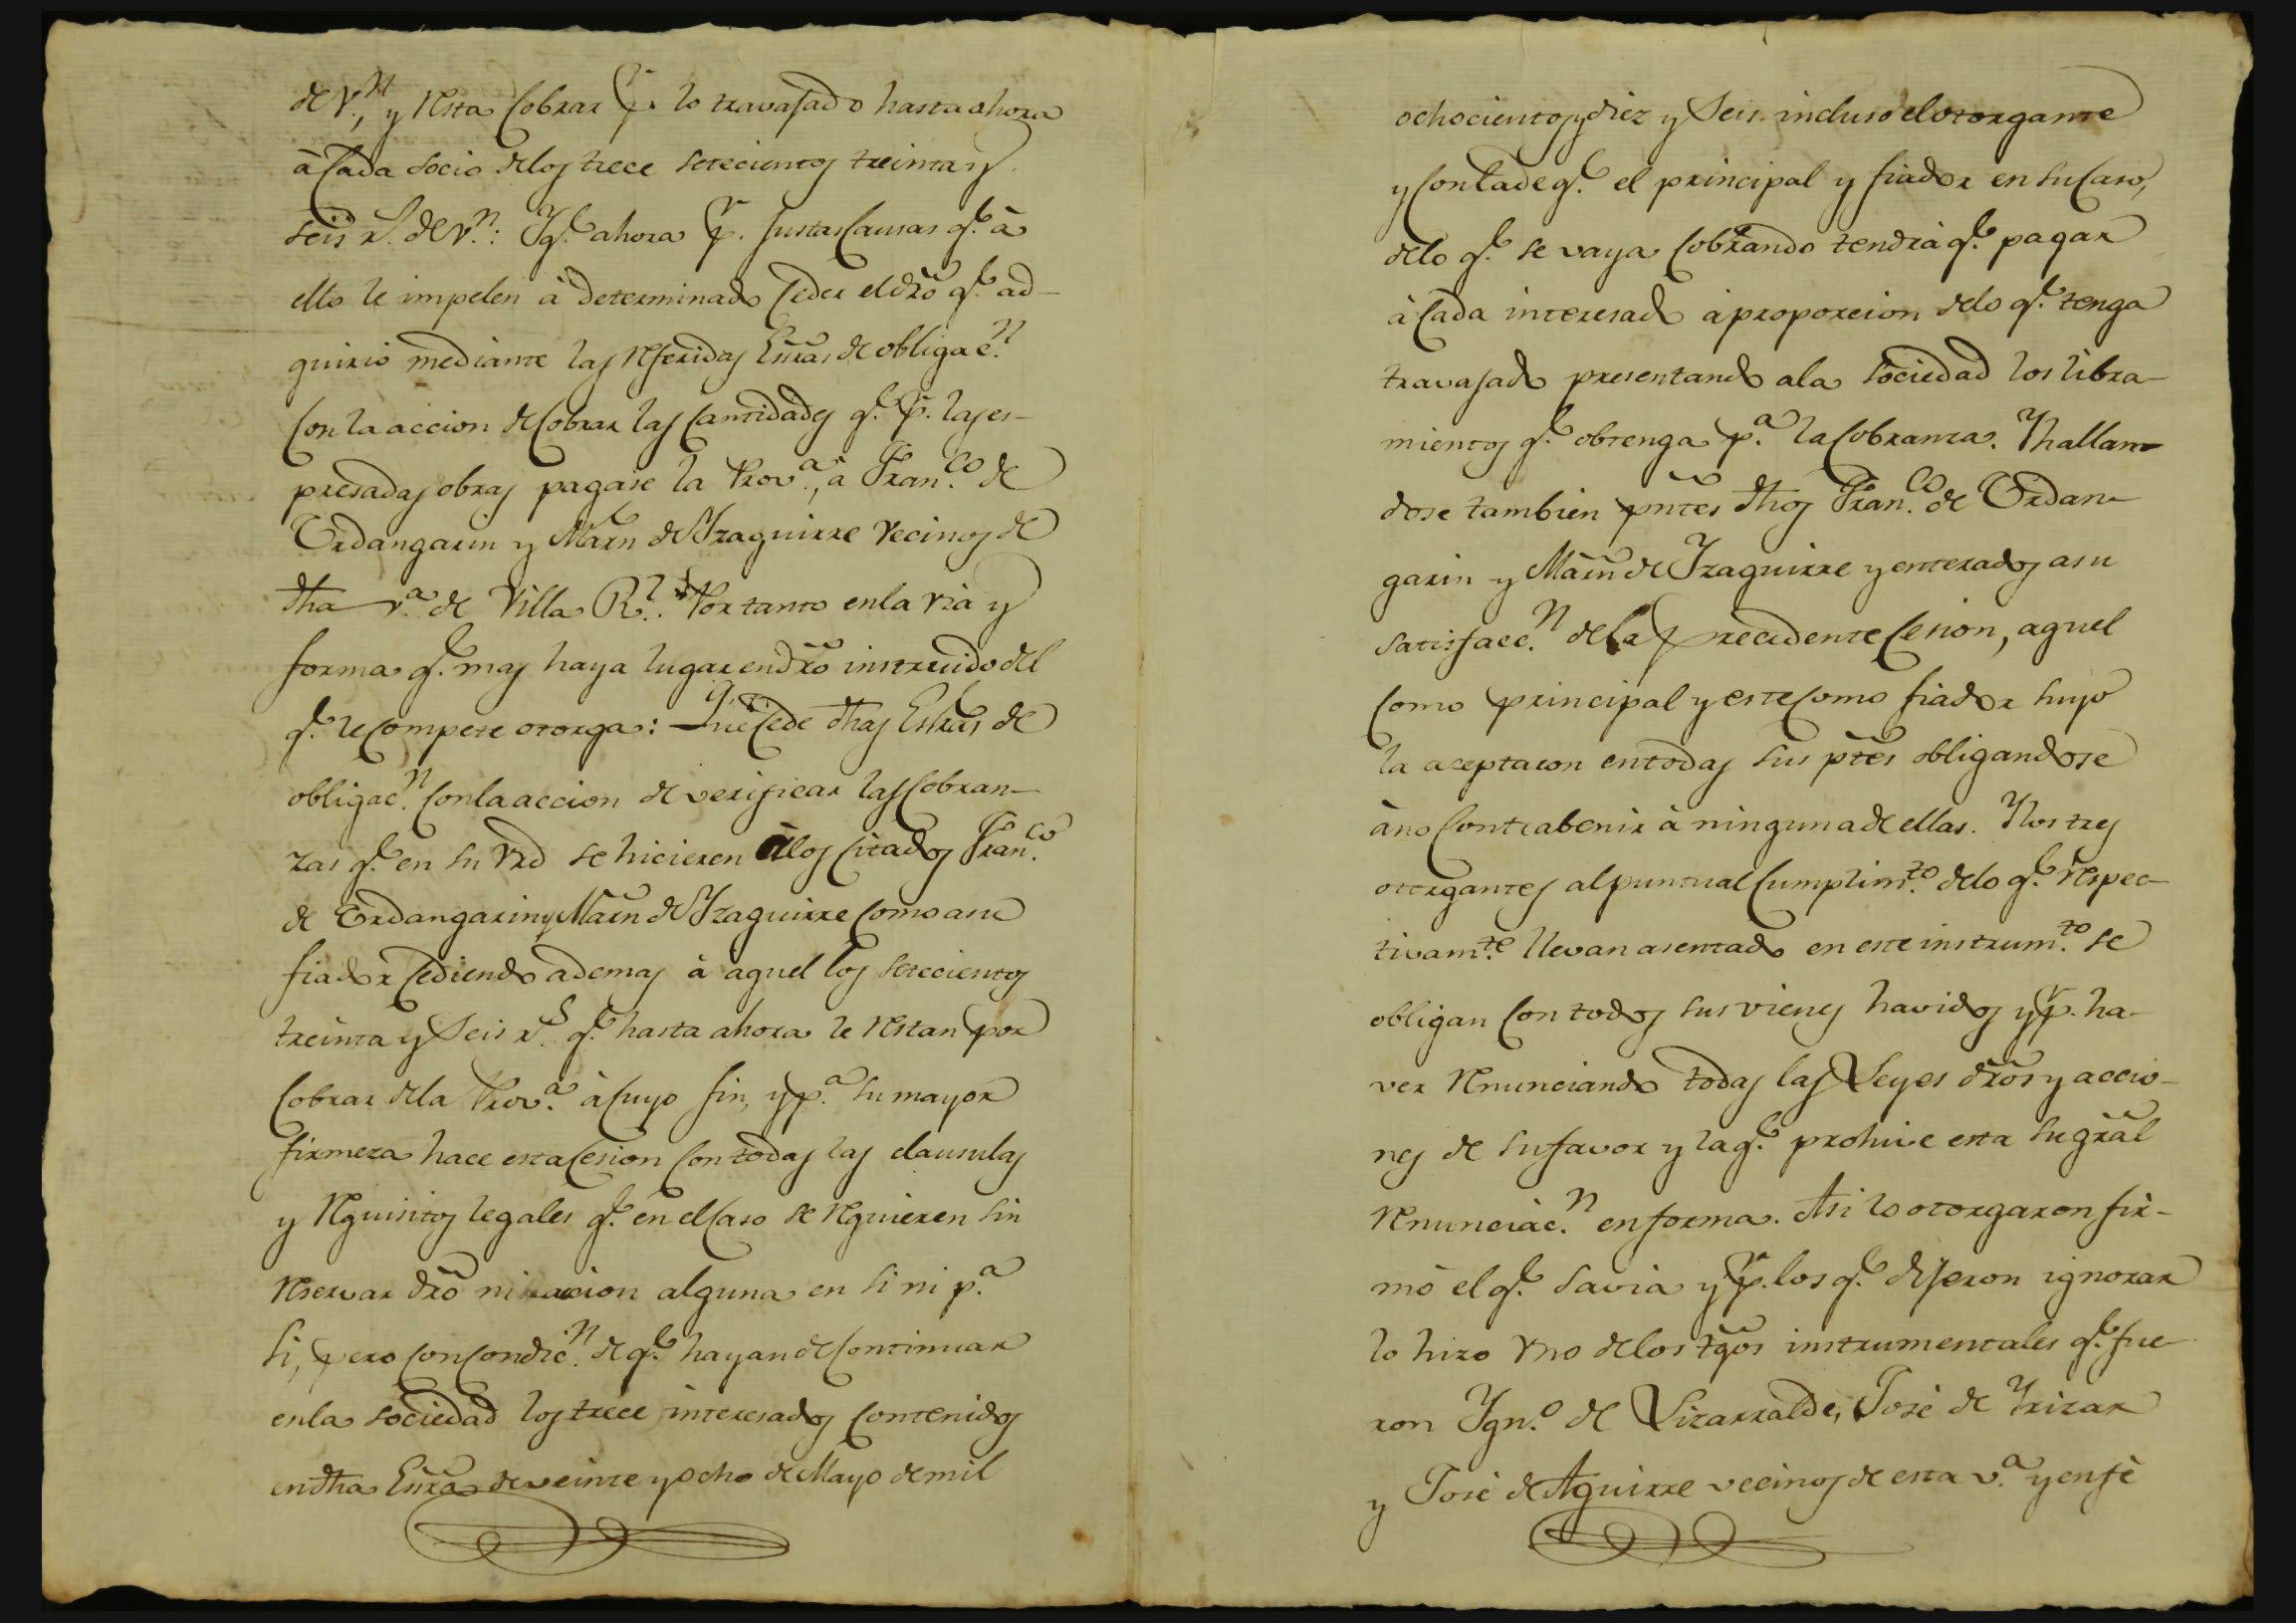 de V.n, y resta cobrar p.r lo travajado hasta ahora
à cada socio delos trece setecientos treinta y
seis r.s de V.n: Yq.e ahora p.r justas causas q.e à
ello le impelen à determinado ceder el dro q.e ad-
quirio mediante las referidas Esras de obligac.n
con la accion de cobrar las cantidades q.e p.r las es-
presadas obras pagase la Prov.a, à Fran.co de
Ordangarin y Marn de Yzaguirre vecinos de
dha v.a de Villa R.l. Por tanto enla via y
forma q.e mas haya lugar en dro instruido del
q.e le compete otorga: Que cede dhas Esras de
obligac.n con la accion de verificar las cobran-
zas q.e en su vrd se hicieren à los citados Fran.co
de Ordangarin y Marn de Yzaguirre como asu
fiador cediendo ademas à aquel los setecientos
treinta y Seis r.s q.e hasta ahora le restan por
cobrar dela Prov.a à cuyo fin, y p.a su mayor
firmeza hace esta cesion con todas las clausulas
y requisitos legales q.e en el caso se requieren sin
reservar dro ni accion alguna en si ni p.a
si, pero con condic.n de q.e hayan de continuar
enla sociedad los trece interesados contenidos
en dha Esra de veinte y ocho de Mayo de mil
ochocientos y diez y Seis incluso el otorgante
y con la de q.e el principal y fiador en su caso,
delo q.e se vaya cobrando tendrà q.e pagar
à cada interesado à proporcion delo q.e tenga
travajado presentando ala sociedad los libra-
mientos q.e obtenga p.a la cobranza. Y hallan-
dose tambien pntes dhos Fran.co de Ordan-
garin y Marn de Yzaguirre y enterados asu
satisfacc.n dela precedente cesion, aquel
como principal y este como fiador suyo
la aceptaron en todas sus ptes obligandose
à no contrabenir à ninguna de ellas. Y los tres
otorgantes al puntual cumplim.to delo q.e respec-
tivam.te llevan asentado en este instrum.to se
obligan con todos sus vienes havidos y p.r ha-
ver renunciando todas las Leyes dros y accio-
nes de su favor y la q.e prohive esta su gral
renunciac.n en forma. Asi lo otorgaron fir-
mò el q.e savia y p.r los q.e dijeron ignorar
lo hizo vno delos tgos instrumentales q.e fue-
ron Ygn.o de Lizarralde, José de Yrizar
y José de Aguirre vecinos de esta v.a y en fè